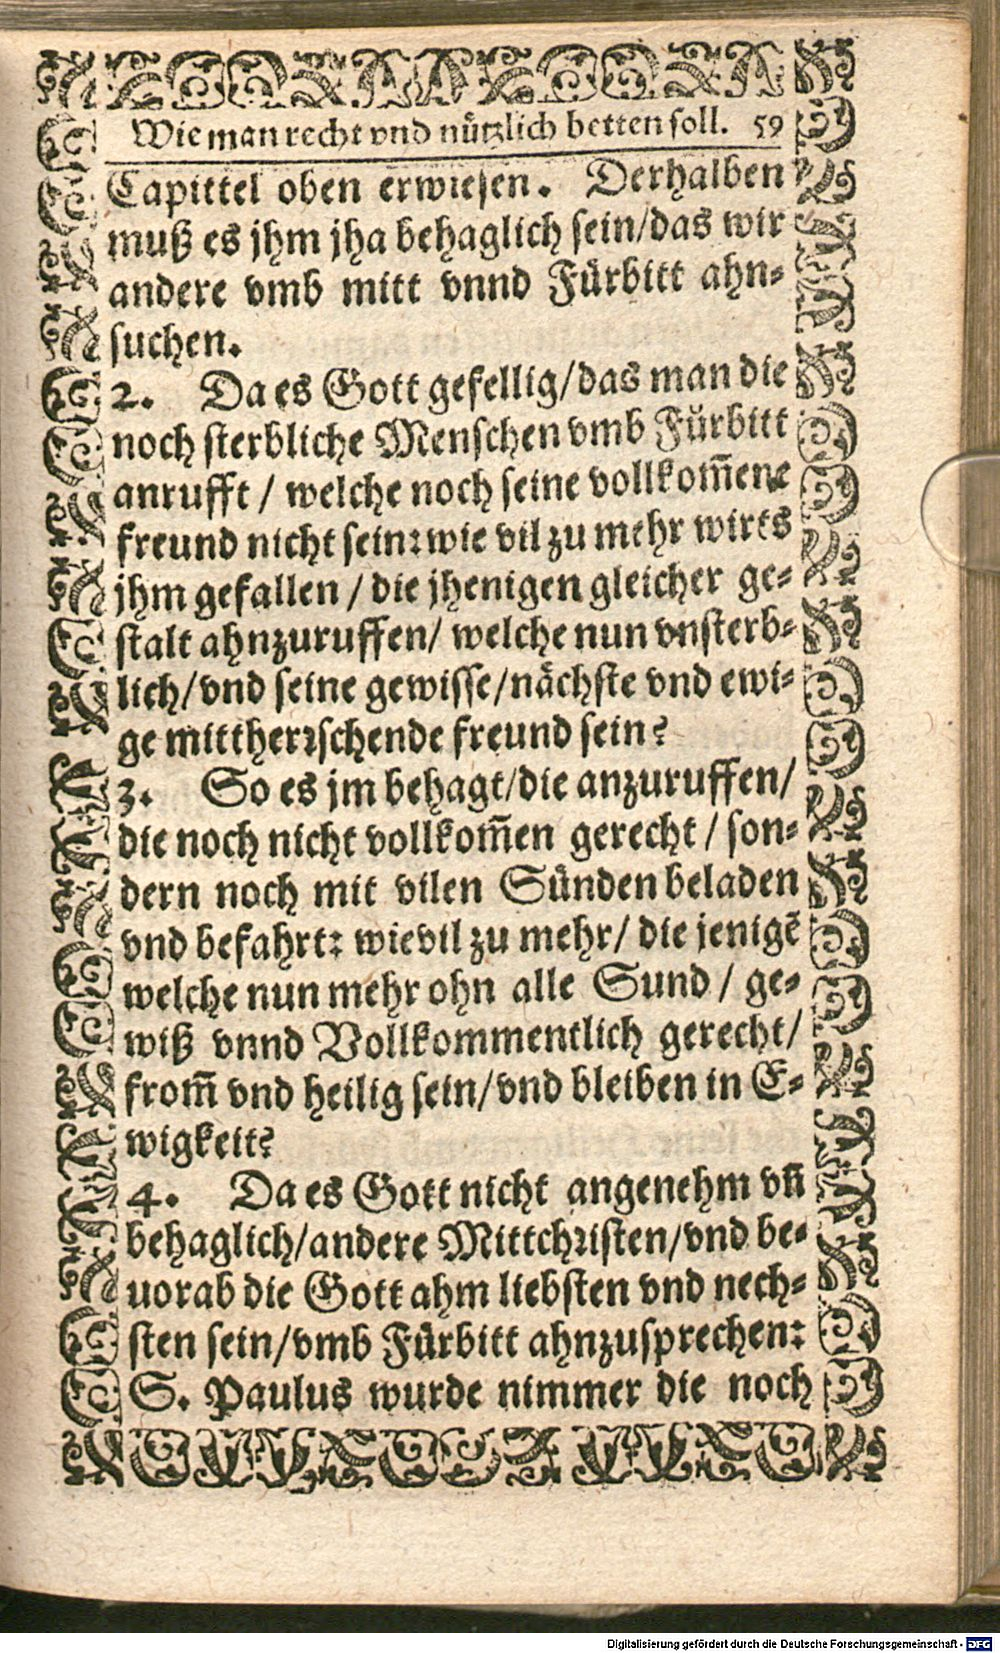 Wie man recht vnd nützlich betten soll. 59
Capittel oben erwiesen. Derhalben
muß es jhm jha behaglich sein/das wir
andere vmb mitt vnnd Fürbitt ahn-
suchen.
2. Da es Gott gefellig/das man die
noch sterbliche Menschen vmb Fürbitt
anrufft / welche noch seine vollkom̃ene
freund nicht sein: wie vil zu mehr wirts
jhm gefallen / die jhenigen gleicher ge-
stalt ahnzuruffen/ welche nun vnsterb-
lich/vnd seine gewisse/nächste vnd ewi-
ge mittherrschende freund sein?
3. So es jm behagt/die anzuruffen/
die noch nicht vollkom̃en gerecht / son-
dern noch mit vilen Sünden beladen
vnd befahrt: wievil zu mehr/ die jenigẽ
welche nun mehr ohn alle Sund / ge-
wiß vnnd Vollkommentlich gerecht/
from̃ vnd heilig sein/vnd bleiben in E-
wigkeit?
4. Da es Gott nicht angenehm vñ
behaglich/andere Mittchristen/vnd be-
uorab die Gott ahm liebsten vnd nech-
sten sein/vmb Fürbitt ahnzusprechen:
S. Paulus wurde nimmer die noch
Digitalisierung gefördert durch die Deutsche Forschungsgemeinschaft - DFG